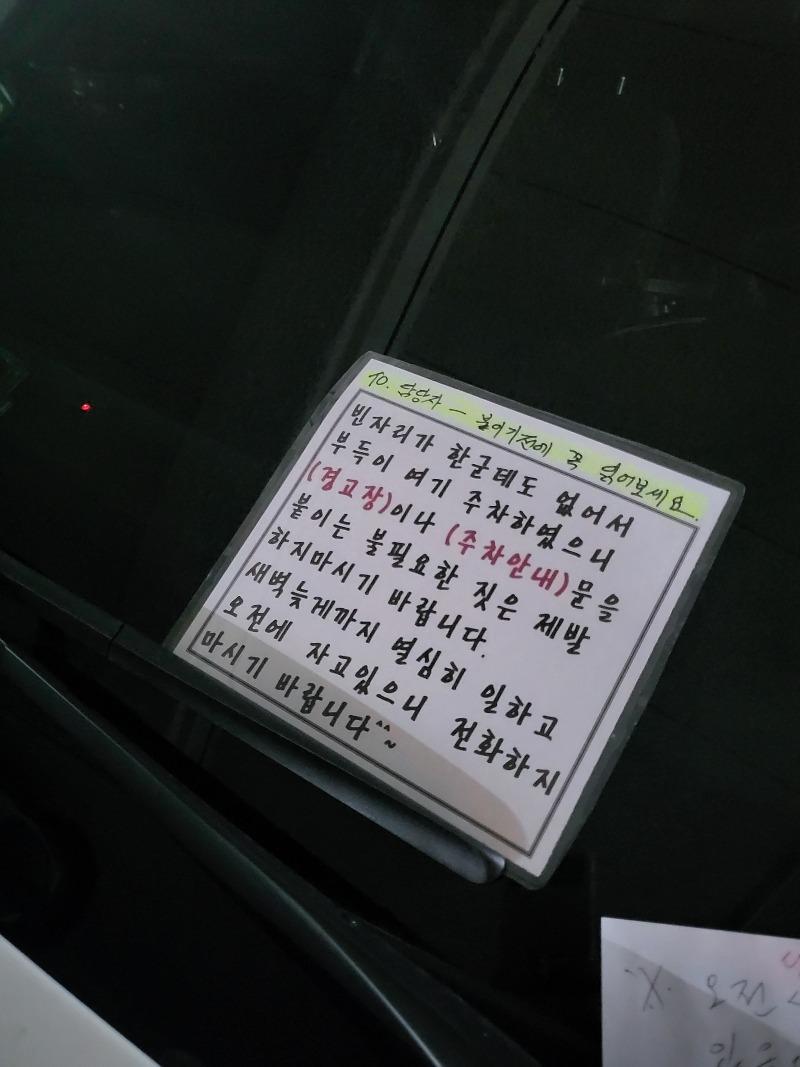 To. 담당자 — 붙이기전에 꼭 읽어보세요.
빈자리가 한군데도 없어서
부득이 여기 주차하였으니
(경고장)이나 (주차안내)문을
붙이는 불필요한 짓은 제발
하지마시기 바랍니다.
새벽늦게까지 열심히 일하고
오전에 자고있으니 전화하지
마시기 바랍니다^^~
※ 오전